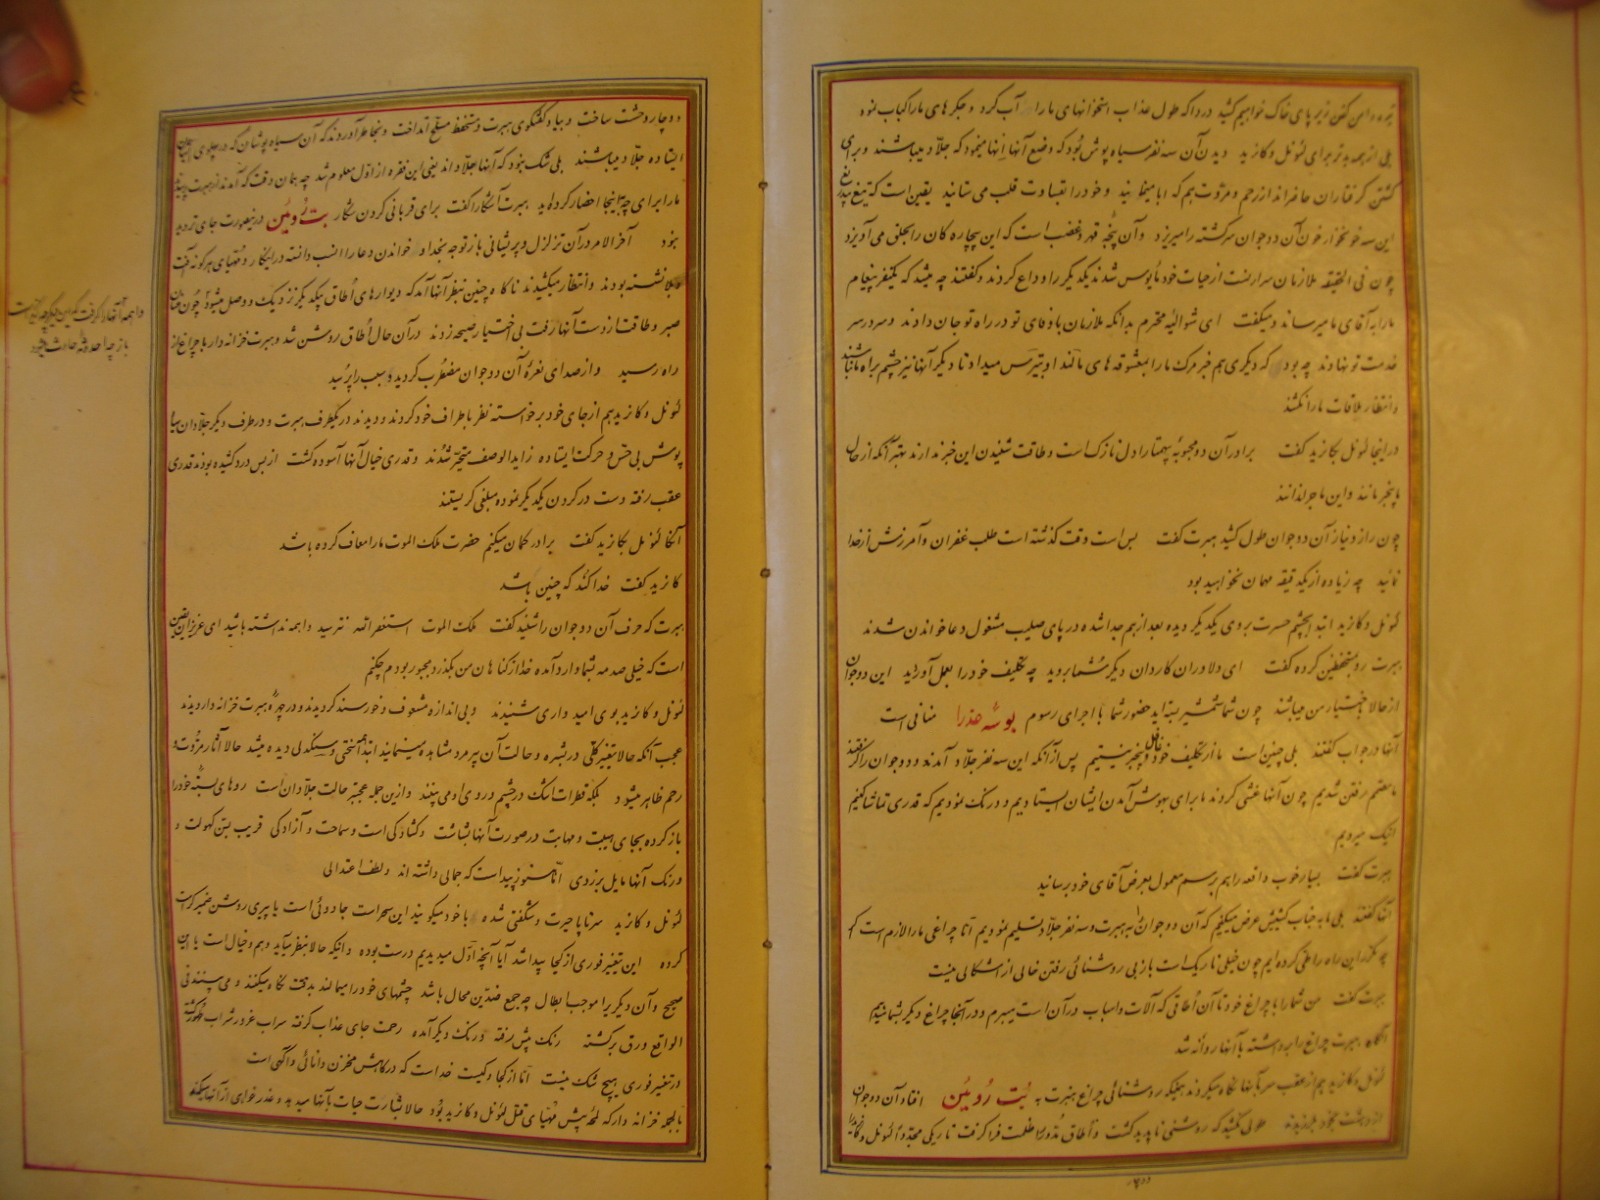 تیره دامن کفن زیر پای خاک خواهیم کشید درد اکه طول عذاب استخوانهای مارا آب کرد و جکرهای مارا کباب نمود
بلی از همه بدتر برای لئونل و کازید دیدن آن سه نفر سیاه پوش بود که وضع آنها مینمود که جلاد میباشند و برای
کشتن کرفتاران حاضراند از رحم و مروت هم که ابا مینمایند و خود را بقساوت قلب می ستایند یقین است که تیغ بیدریغ
این سه خونخوار خون آن دو جوان سرکشته را میریزد و آن پنجه قهر و غضب است که این بیچاره کان را بحلق می آویزد
چون فی الحقیقه ملازمان سرارنست از حیات خود مأیوس شدند یکدیگر را وداع کردند و کفتند چه میشد که یکنفر پیغام
مارا به آقای ما میرساند و میکفت ای شوالیه محترم بدانکه ملازمان باوفای تو در راه تو جان دادند و سر در سر
خدمت تو نهادند چه بود که دیگری هم خبر مرک مارا بمعشوقه های ما لندا و بتیرس میداد تا دیگر آنها نیز چشم براه ما نباشند
و انتظار ملاقات مارا نکشند
در اینجا لئونل بکازید کفت برادر آن دو محبوبه بیهمتا را دل نازک است و طاقت شنیدن این خبر ندارند بهتر آنکه از حال
ما بیخبر مانند و این ماجرا ندانند
چون راز و نیاز آن دو جوان طول کشید هبرت کفت بس است وقت کذشته است طلب غفران و آمرزش از خدا
نمائید چه زیاده از یکدقیقه مهمان نخواهید بود
لئونل و کازید ابتدا بچشم حسرت بروی یکدیگر دیده بعد از هم جدا شده در پای صلیب مشغول دعا خواندن شدند
هبرت رو بمستحفظین کرده کفت ای دلاوران کاردان دیگر شما بروید چه تکلیف خود را بعمل آوردید این دو جوان
از حالا باختیار من میباشند چون شما شمشیر بسته اید حضور شما با اجرای رسوم بوسه عذرا منافی است
آنها در جواب کفتند بلی چنین است ما از تکلیف خود غافل و بیخبر نیستیم پس از آنکه این سه نفر جلاد آمدند و دو جوان را کرفتند
ما مصمم رفتن شدیم چون آنها غشی کردند ما برای بهوش آمدن ایشان ایستادیم و درنک نمودیم که قدری تماشا کنیم
اینک میرویم
هبرت کفت بسیار خوب واقعه را هم برسم معمول بعرض آقای خود برسانید
آنها کفتند بلی ما به جناب کنتیش عرض میکنیم که آن دو جوان را به هبرت و سه نفر جلاد تسلیم نمودیم اما چراغی مارا لازم است که
هر چند این راه را طی کرده ایم چون خیلی تاریک است باز بی روشنائی رفتن خالی از اشکالی نیست
هبرت کفت من شما را با چراغ خود تا آن اطاقی که آلات و اسباب در آن است میبرم و در آنجا چراغ دیگر بشما میدهم
آنکاه هبرت چراغ را برداشته با آنها روانه شد
لئونل و کازید هم از عقب سر آنها نکاه میکردند همینکه روشنائی چراغ هبرت به بت روئین افتاد آن دو جوان
از وحشت بخود لرزیدند طولی نکشید که روشنی ناپدید کشت و اطاق مذور را ظلمت فرا کرفت تاریکی مجددا لئونل و کازید را
دوچار وحشت ساخت و بیاد کفتکوی هبرت و مستحفظ مسلح انداخت و بخاطر آوردند که آن سیاه پوشان که در جلوی ایشان
ایستاده جلاد میباشند بلی شک نبود که آنها جلاد اند یعنی این فقره از اول معلوم شد چه همان وقت که آمدند از هبرت پرسیدند
مارا برای چه باینجا احضار کرده اید هبرت آشکارا کفت برای قربانی کردن شکار بت روئین در اینصورت جای تردید
نبود آخر الامر در آن تزلزل و پریشانی باز توجه بخدا و خواندن دعا را انسب دانسته در اینکار و مهیای هرکونه آفت
و بلا نشسته بودند و انتظار میکشیدند ناکاه چنین بنظر آنها آمد که دیوارهای اطاق بیکدیگر نزدیک و وصل میشود چون عنان
صبر و طاقت از دست آنها رفت بی اختیار صیحه زدند در آن حال اطاق روشن شد و هبرت خزانه دار با چراغ از
راه رسید و از صدای نعره آن دو جوان مضطرب کردید و سبب را پرسید
لئونل و کازید هم از جای خود برخواسته نظر باطراف خود کردند و دیدند در یکطرف هبرت و در طرف دیگر جلادان سیاه
پوش بی حس و حرکت ایستاده زاید الوصف متحیر شدند و قدری خیال آنها آسوده کشت از بس درد کشیده بودند قدری
عقب رفته دست در کردن یکدیگر نموده مبلغی کریستند
آنکاه لئونل بکازید کفت برادر کمان میکنم حضرت ملک الموت مارا معاف کرده باشد
کازید کفت خدا کند که چنین باشد
هبرت که حرف آن دو جوان را شنید کفت ملک الموت استغفر الله نترسید واهمه نداشته باشید ای عزیزان یقین
است که خیلی صدمه بشما وارد آمده خدا از کناهان من بکذرد مجبور بودم چکنم
لئونل و کازید بوی امیدواری شنیدند و بی اندازه مشعوف و خورسند کردیدند و در چهره هبرت خزانه دار دیدند
عجب آنکه حالا بتغییر کلی در بشره و حالت آن پیرمرد مشاهده مینمایند ابتدا همه سختی و سنکدلی دیده میشد حالا آثار مروت و
رحم ظاهر میشود بلکه قطرات اشک در چشم و روی او می بینند و ازین جمله عجبتر حالت جلادان است روهای بسته خود را
باز کرده بجای هیبت و مهابت در صورت آنها بشاشت و کشادکی است و سماحت و آزادکی قریب بسن کهولت و
و رنک آنها مایل بزردی اما هنوز پیداست که جمالی داشته اند و لطف اعتدالی
لئونل و کازید سرتاپا حیرت و شکفتی شده با خود میکویند این سحر است جادوئی است یا پیری روشن ضمیر کرامت
کرده این تغییر فوری از کجا پیدا شد آیا آنچه اول میدیدیم درست بوده و اینکه حالا بنظر میآید وهم و خیال است یا این
صحیح و آن دیگر را موجب ابطال چه جمع ضدین محال باشد چشمهای خود را میمالند بدقت نکاه میکنند و می بینند فی
الواقع ورق برکشته رنک پیش رفته و رنک دیگر آمده رحمت جای عذاب کرفته سراب غرور شراب طهور کشته
در تغییر فوری هیچ شک نیست اما از کجا و کیست خداست که در کاهش مخزن دانائی و آکهی است
بالجمله خزانه دار که لمحه پیش مهیای قتل لئونل و کازید بود حالا بشارت حیات بآنها میدهد و عذر خواهی از آنها میکند
واهمه آنها را کرفت که این دیگر چه کیفیت است
باز چه حادثه حادث میشود